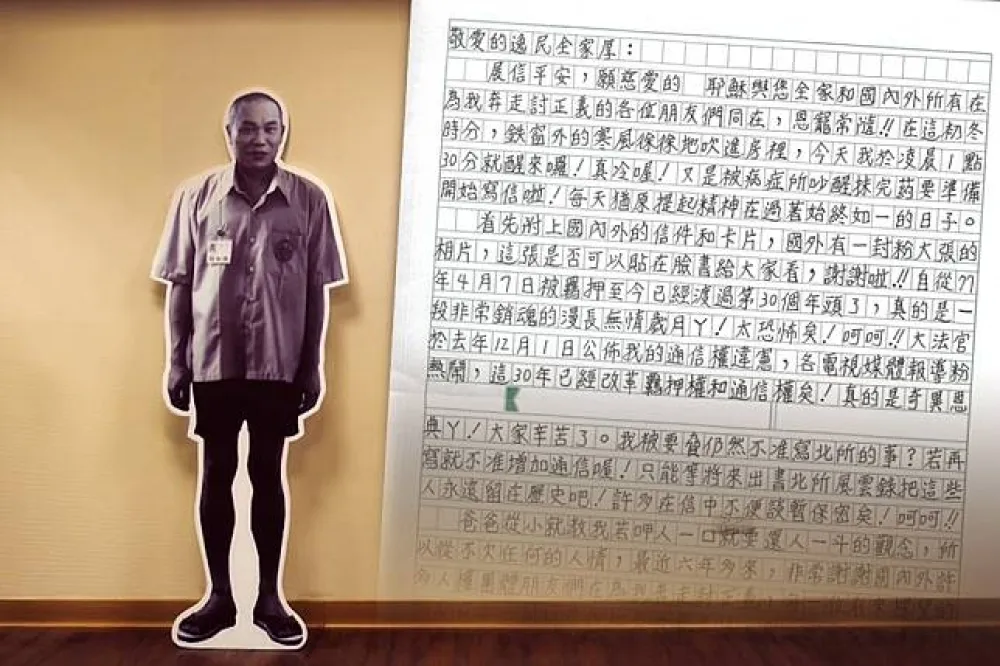 敬愛的逸民全家厚:
展信平安,願慈愛的 耶穌與您全家和國內外所有在
為我奔走討正義的各位朋友們同在,恩寵常隨!!在這初冬
時分,鉄窗外的寒風徐徐地吹進房裡,今天我於凌晨1點
30分就醒來囉!真冷喔!又是被病症所吵醒抹完药要準備
開始寫信啦!每天猶原提起精神在過著始終如一的日子。
首先附上國內外的信件和卡片,國外有一封粉大張的
相片,這張是否可以貼在臉書給大家看,謝謝啦!!自從77
年4月7日被羈押至今已經渡過第30個年頭了,真的是一
段非常銷魂的漫長無情歲月丫!太恐怖矣!呵呵!!大法官
於去年12月1日公佈我的通信權違憲,各電視媒體報導粉
熱鬧,這30年已經改革羈押權和通信權矣!真的是奇異恩
典丫!大家辛苦了。我被要脅仍然不准寫北所的事?若再
寫就不准增加通信喔!只能等將來出書北所風雲錄把這些
人永遠留在歷史吧!許多在信中不便談暫保密矣!呵呵!!
爸爸從小就教我若呷人一口就要還人一斗的觀念,所
以從不欠任何的人情,最近六年多來,非常謝謝國內外許
多人權團體朋友們在為我奔走討正義